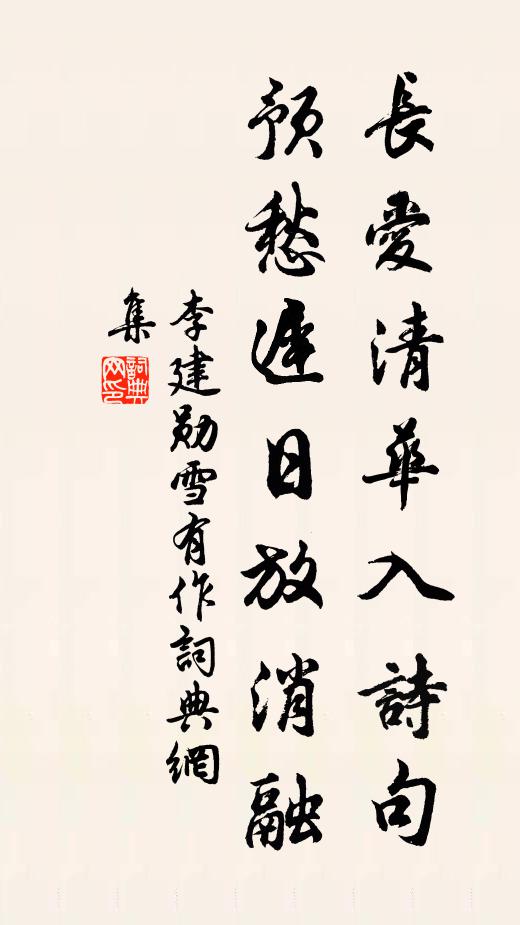 長愛清華入詩句
預愁遲日放消融
李建勋雪有作詞典網
集
詞典
网印